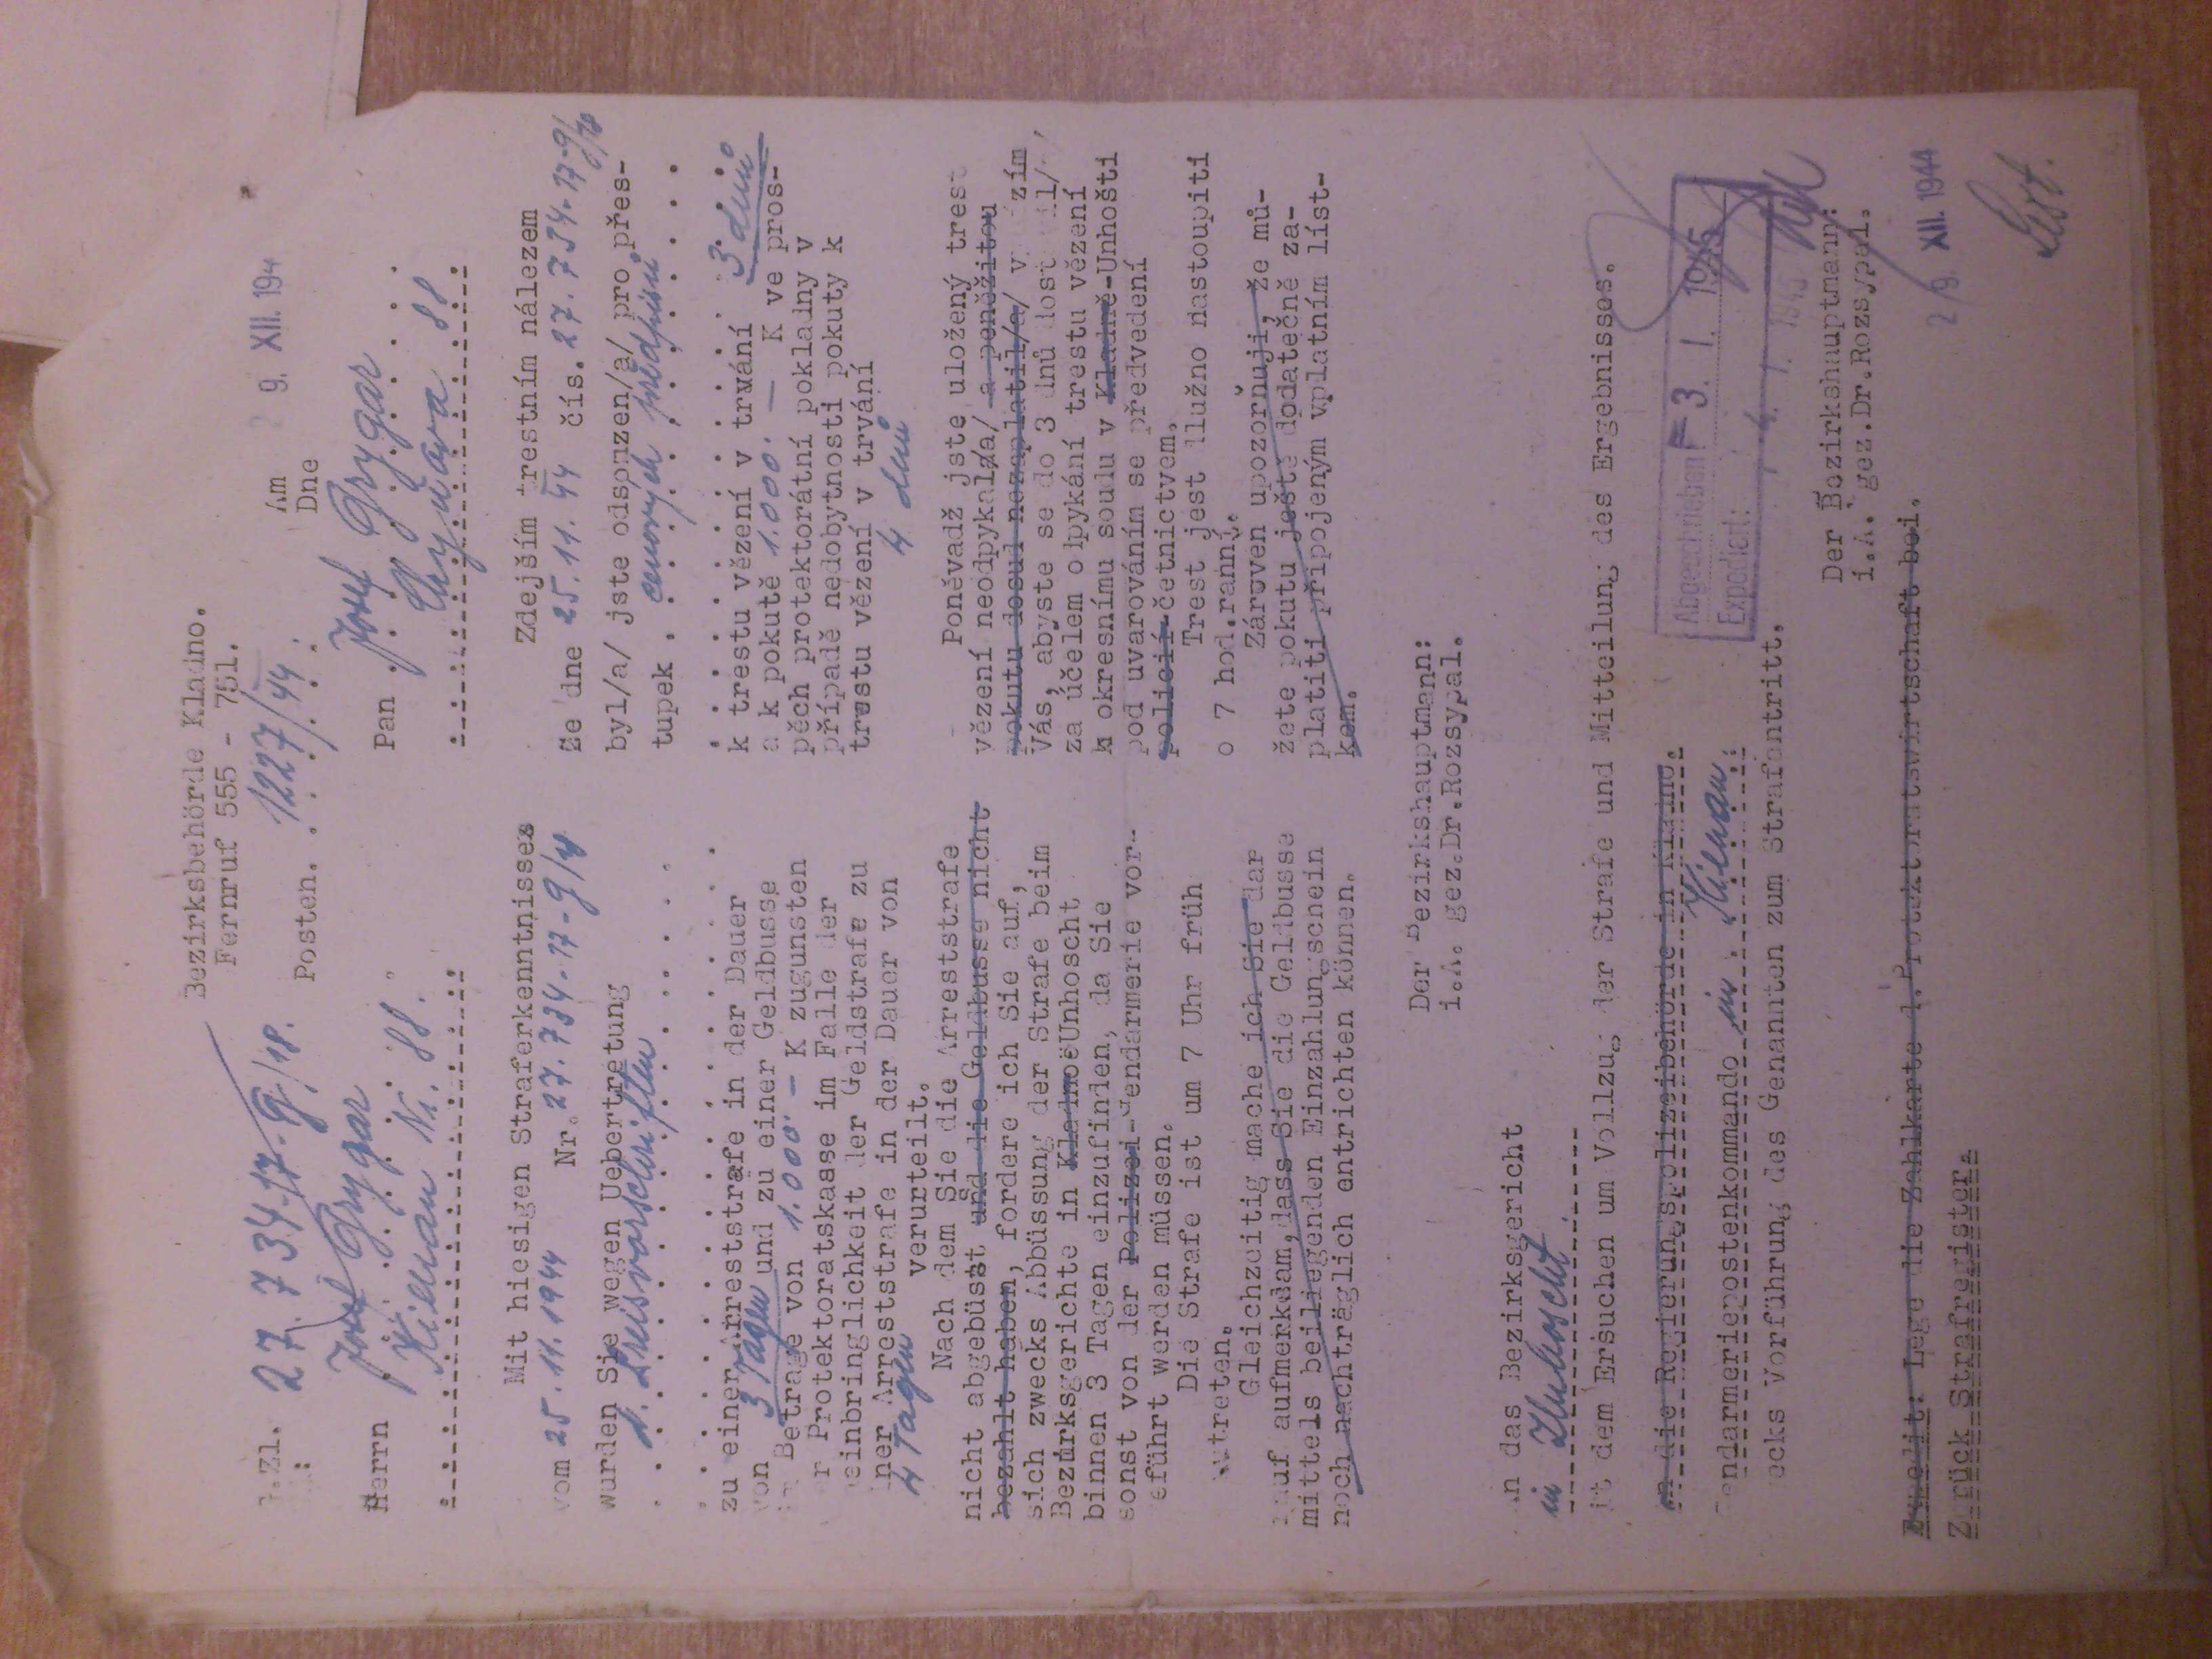 Bezirksbehörde Kladno.
Fernruf 555 - 751.
G.Zl. 27.734-17-g/18.
Posten. 1227/44
Am 29. XII. 194
Dne
Herrn Josef Grygar
Kienau Nr. 88.
Mit hiesigen Straferkenntnisses
vom 25.11.1944 Nr. 27.734-17-g/18
wurden Sie wegen Uebertretung
d. Preisvorschriften
zu einer Arreststrafe in der Dauer
von 3 Tagen und zu einer Geldbusse
im Betrage von 1.000·- K zugunsten
er Protektoratskasse im Falle der
einbringlichkeit der Geldstrafe zu
iner Arreststrafe in der Dauer von
4 Tagen verurteilt.
Nach dem Sie die Arreststrafe
nicht abgebüsst und die Geldbusse nicht
bezahlt haben, fordere ich Sie auf,
sich zwecks Abbüssung der Strafe beim
Bezirksgerichte in Kladno-Unhoscht
binnen 3 Tagen einzufinden, da Sie
sonst von der Polizei-Gendarmerie vor-
eführt werden müssen.
Die Strafe ist um 7 Uhr früh
utreten.
Gleichzeitig mache ich Sie dar
rauf aufmerksam, dass Sie die Geldbusse
mittels beiliegenden Einzahlungschein
noch nachträglich entrichten können.
Pan Josef Grygar
Chyňava 88
Zdejším trestním nálezem
Ze dne 25.11.44 čís. 27.734-17-g/18
byl/a/ jste odsouzen/a/ pro přes-
tupek cenových předpisů
k trestu vězení v trvání 3 dnů
a k pokutě 1.000·- K ve pros-
pěch protektorátní pokladny v
případě nedobytnosti pokuty k
trestu vězení v trvání
4 dnů
Poněvadž jste uložený trest
vězení neodpykal/a/ a peněžitou
pokutu dosud nezaplatil/a/ vyzízím
Vás, abyste se do 3 dnů dostavil/a/
za účelem odpykání trestu vězení
k okresnímu soudu v Kladně-Unhošti
pod uvarováním se předvedení
policií-četnictvem.
Trest jest llužno nastoupiti
o 7 hod.ranní.
Zároveň upozorňuji, že mů-
žete pokutu ještě dodatečně za-
platiti připojeným vplatním líst-
kem.
Der Bezirkshauptmann:
i.A. gez.Dr.Rozsypal.
An das Bezirksgericht
in Unhoscht.
it dem Ersuchen um Vollzug der Strafe und Mitteilung des Ergebnisses.
An die Regierungspolizeibehörde in Kladno.
Gendarmeriepostenkommando in Kienau.
ecks Vorführung des Genannten zum Strafantritt.
Abgeschrieben: - 3. I. 1945
Expediert: - 4. I. 1945
Der Bezirkshauptmann:
i.A. gez.Dr.Rozsypal.
Expedit: Lege die Zahlkarte d.Protektoratswirtschaft bei.
Zurück Strafregister.
29. XII. 1944